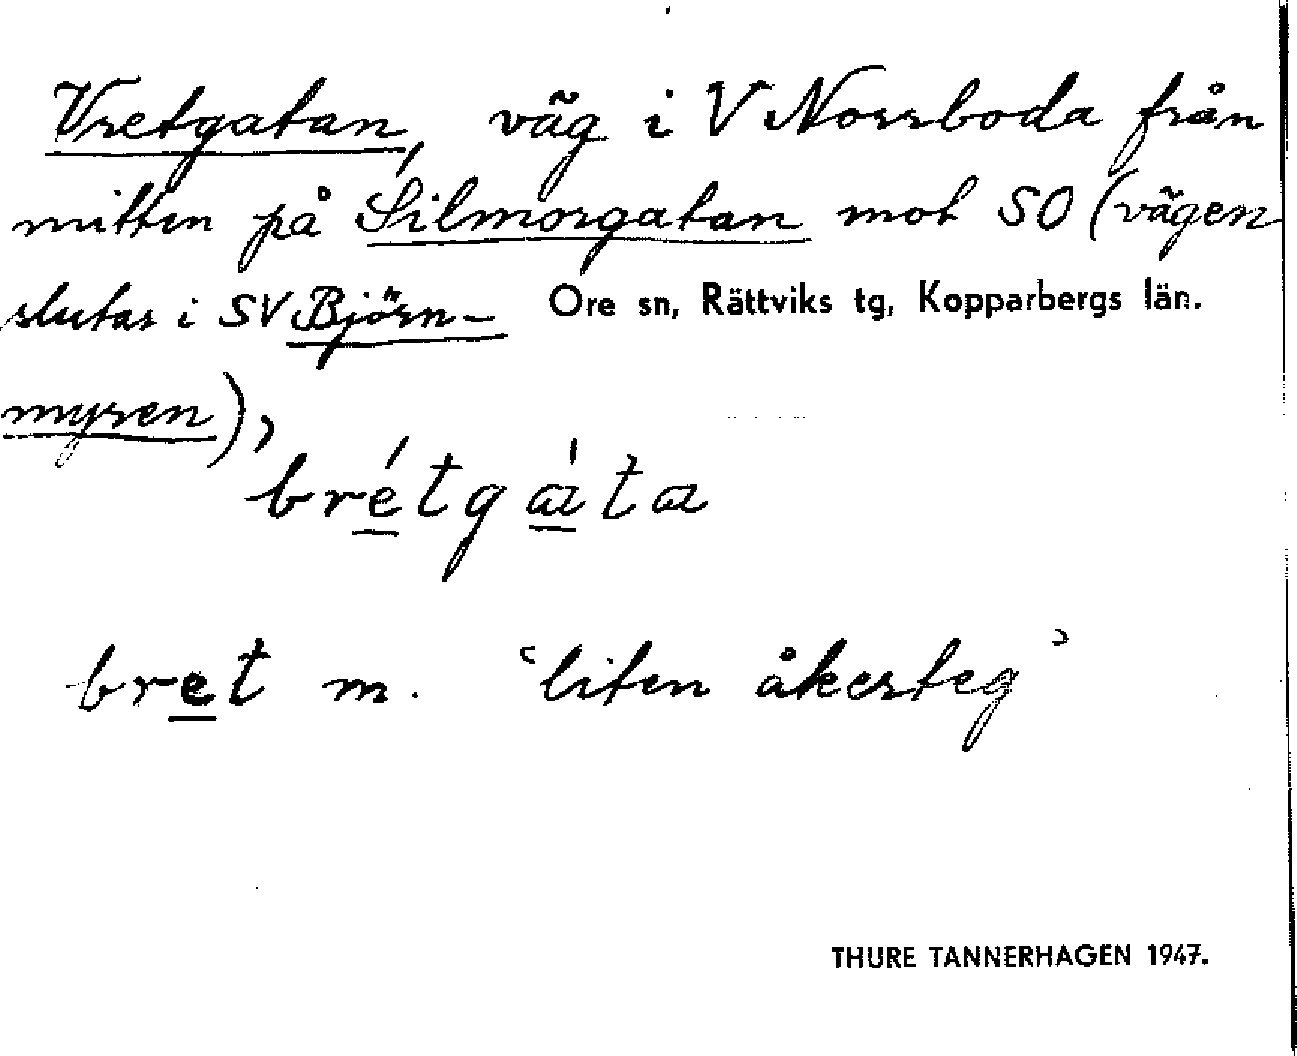 Vretgatan, väg i V Norrboda från
mitten på Silmorgatan mot SO (vägen
slutar i SV Björn-
Ore sn, Rättviks tg, Kopparbergs län.
myren),
brétgàta
bret m. ‘liten åkerteg’
THURE TANNERHAGEN 1947.